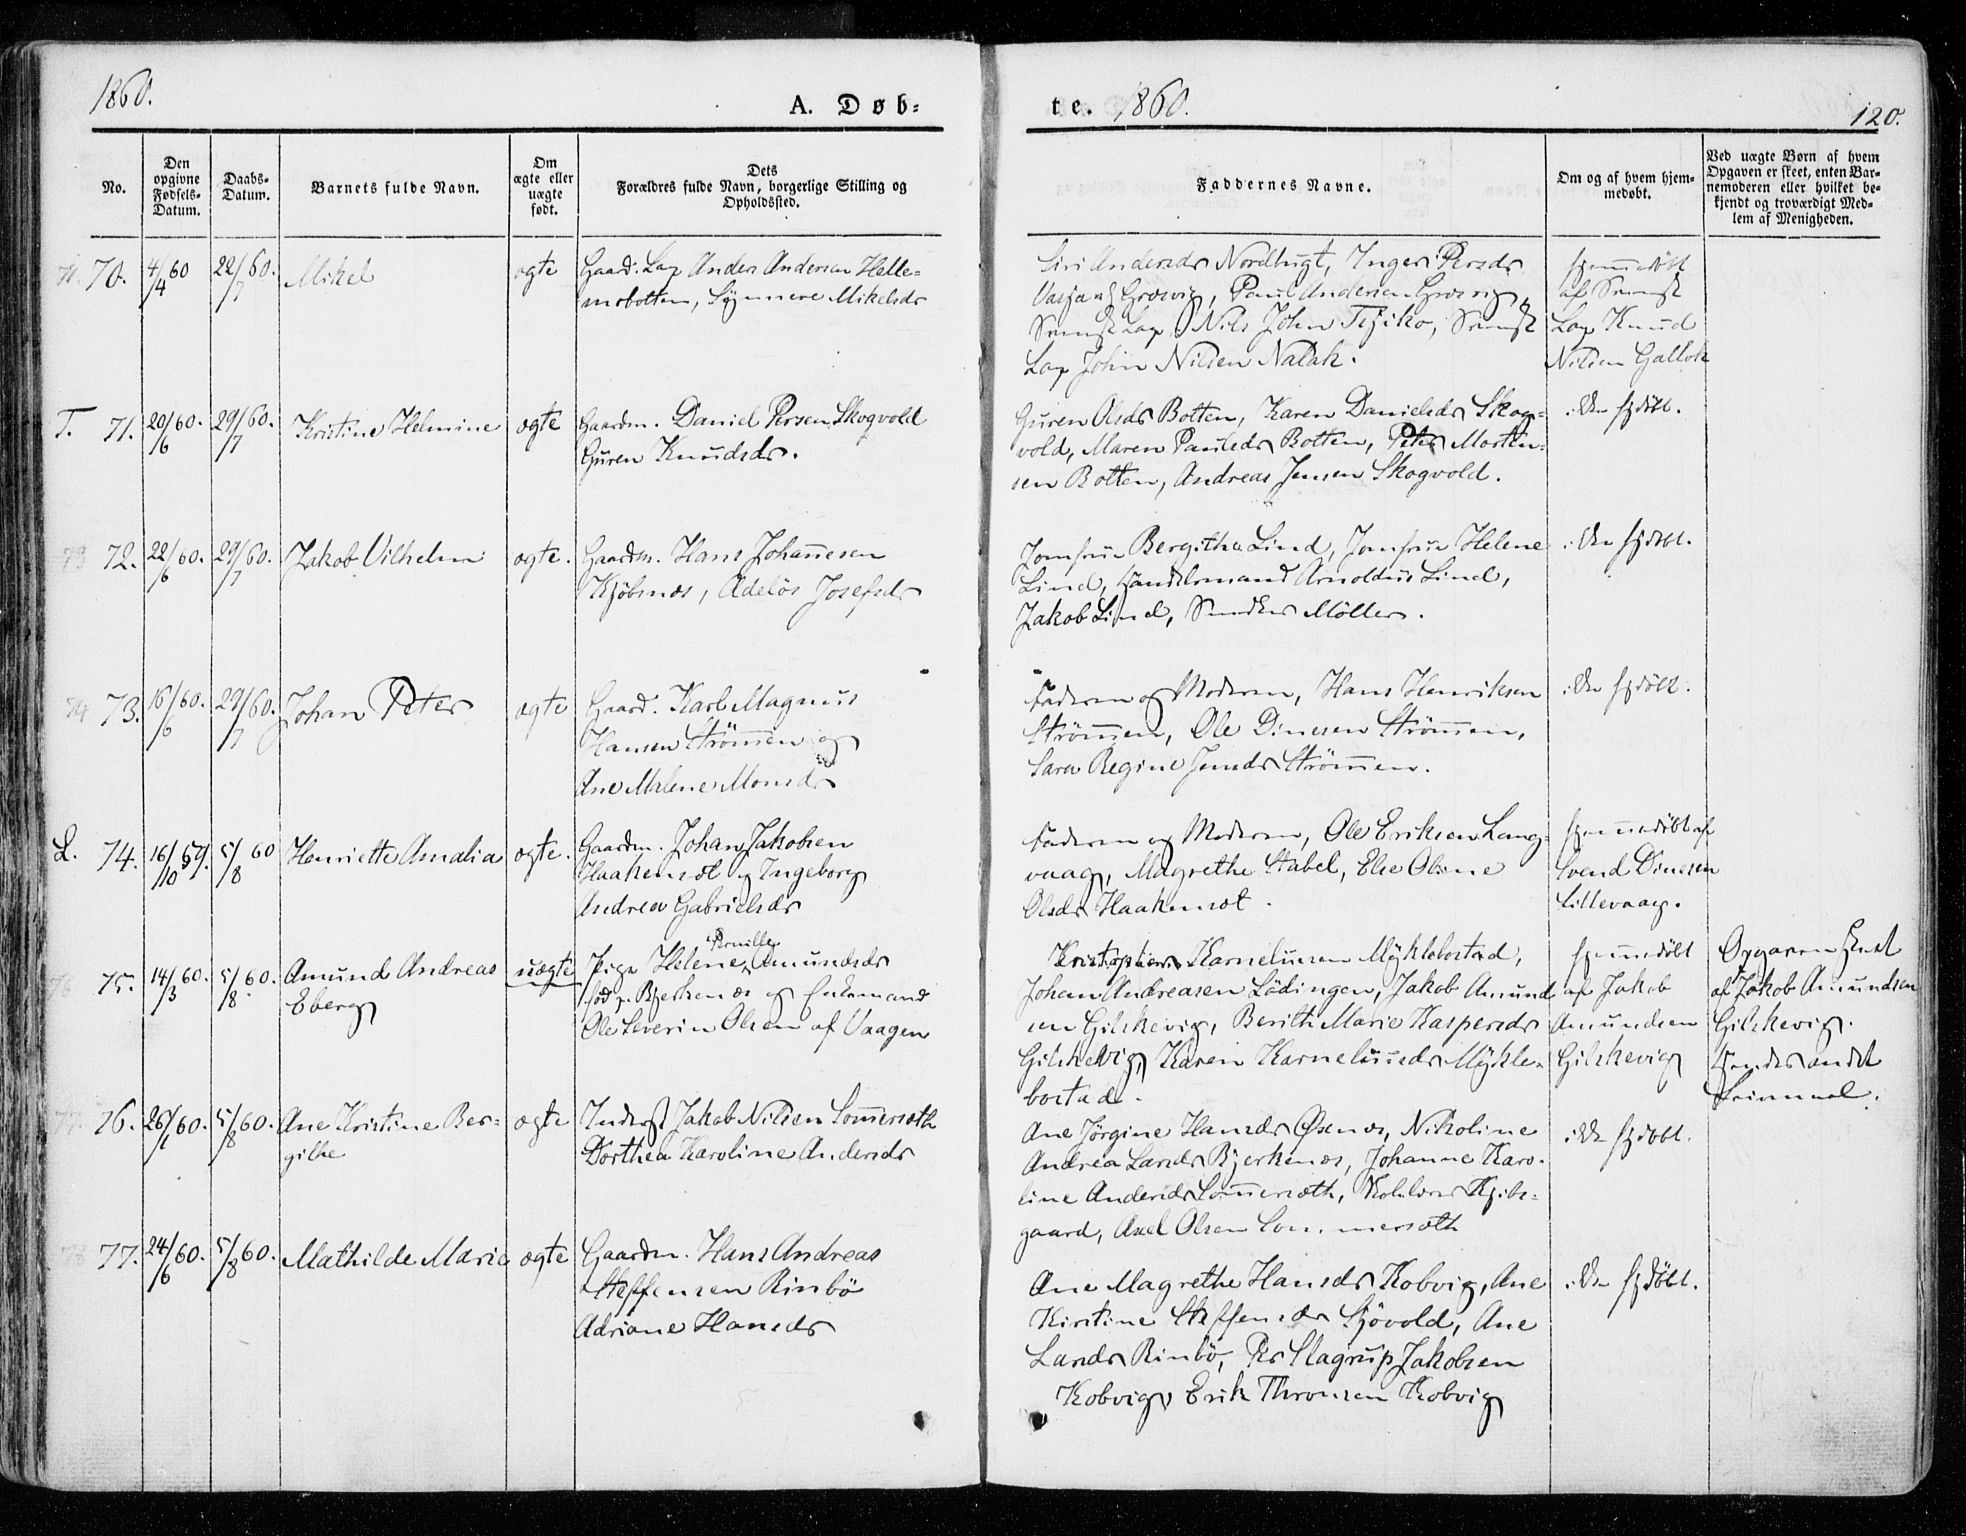 1860.
A. Døb-
te. 1860.
120.
No.
Den opgivne Fødsels-Datum.
Daabs-Datum.
Barnets fulde Navn.
Om ægte eller uægte født.
Dets
Forældres fulde Navn, borgerlige Stilling og
Opholdssted.
Faddernes Navne.
Om og af hvem hjem-
medøbt.
Ved uægte Børn af hvem
Opgaven er skeet, enten Bar-
nemoderen eller hvilket be-
kjendt og troværdigt Med-
lem af Menigheden.
70. 4/4 60 22/7 60. Mikel ægte
Gaard. Lap Anders Andersen Helle-
mobotten, Synnere Mikelsdr
Siri Andersdr Nordbugt, Inger Persdr
Grosvig, Paul Andersen Grosvig,
Svensk Lap Nils John Tjiko, Svensk
Lap John Nilsen Nalak.
hjemmedøbt
af Svensk
Lap Knud
Nilsen Gallok
T. 71. 20/6 60. 29/7 60. Kristine Helmine ægte
Gaardm. Daniel Persen Skogvold
Guren Knudsdr.
Guren Olsdr Botten, Karen Danielsdr Skog-
vold, Maren Paulsdr Botten, Peter Morten-
sen Botten, Andreas Jensen Skogvold.
ikke hjdøbt.
72. 22/6 60. 29/7 60. Jakob Vilhelm ægte.
Gaardm. Hans Johannesen
Kjöbsnæs, Adelös Josefsdr
Jomfrue Bergitha Lind, Jomfrue Helene
Lind, Handelsmand Arnoldus Lind,
Jakob Lind, Snedker Möller.
ikke hjdøbt.
73. 16/6 60. 29/7 60. Johan Peter ægte
Gaard. Karl Magnus
Hansen Strömmen og
Ane Malene Monsdr
Faderen og Moderen, Hans Henriksen
Strömmen, Ole Dinesen Strömmen,
Sara Regine Jensdr Strömmen.
ikke hjdøbt.
L. 74. 16/10 59. 5/8 60 Henriette Amalia ægte.
Gaardm. Johan Jakobsen
Haakensæt og Ingeborg
Andrea Gabrielsdr
Faderen og Moderen, Ole Eriksen Lang-
vaag, Magrethe Stabel, Else Oline
Olsdr Haakensæt.
hjemmedöbt af
Svend Dinesen
Lillevaag.
75. 14/3 60. 5/8 60. Amund Andreas
Eberg
uægte
Pige Helene Pernille Amundsdr
föd p. Bjerkenæs og Enkemand
Ole Severin Olsen af Vaagen
Kristopher Karneliussen Myklebostad,
Johan Andreasen Lödingen, Jakob Amund
sen Gilskevig, Berith Marie Kaspersdr
Gilskevig, Karen Karneliusdr Mykle-
bostad.
hjemmedöbt
af Jakob
Amundsen
Gilskevig
Opgaven skeet
af Jakob Amundsen
Gilskevig.
Hendes andet
Leiermaal.
76. 26/1 60. 5/8 60. Ane Kristine Ber-
githe
ægte
Inderst Jakob Nilsen Sommersæth
Dorthea Karoline Andersdr
Ane Jörgine Hansdr Øsenæs, Nikoline
Andrea Larsdr Bjerkenæs, Johanne Karo-
line Andersdr Sommersæth, Kirke-
gaard, Axel Olsen Sommersæth
ikke hjdöbt.
77. 24/6 60. 5/8 60. Mathilde Marie ægte
Gaardm. Hans Andreas
Steffensen Rinbö
Adriane Hansdr
Ane Magrethe Hansdr Kobvig, Ane
Kirstine Steffensdr Sjövold, Ane
Larsdr Rinbö, Per Slagrup Jakobsen
Kobvig, Erik Thronsen Kobvig
ikke hjdöbt.